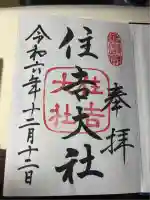 奉拝
住吉大社
住吉大社
令和六年十二月十二日